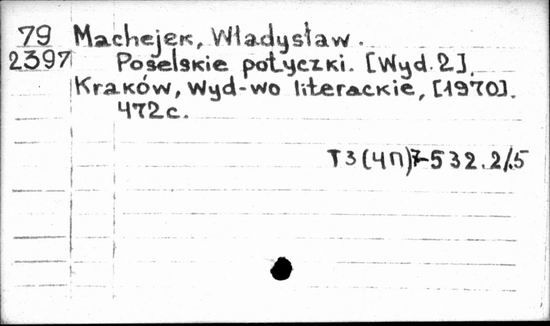 79 Machejek, Władysław.
2397 Poselskie potyczki. [Wyd. 2].
Kraków, Wyd-wo literackie, [1970].
472 c.
T3(4П)7-532.2/.5